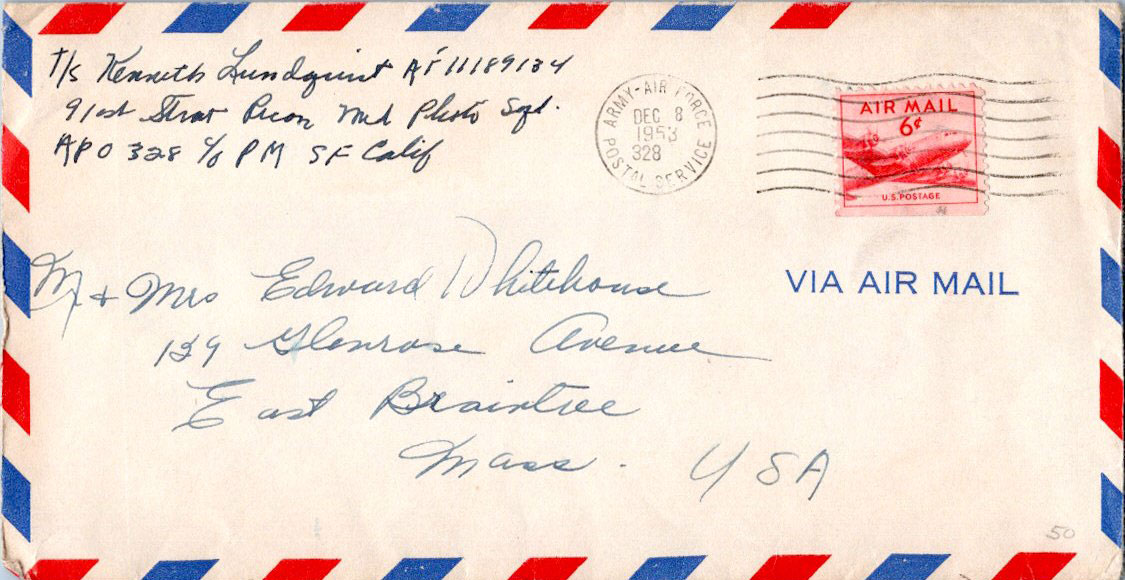 T/S Kenneth Lundquist AF 11189134
91st Strat Recon Med Photo Sqd.
APO 328 c/o PM SF Calif
ARMY-AIR FORCE
DEC 8
1953
328
POSTAL SERVICE
AIR MAIL
6¢
U.S. POSTAGE
VIA AIR MAIL
Mr + Mrs Edward Whitehouse
139 Glenrose Avenue
East Braintree
Mass. USA
50